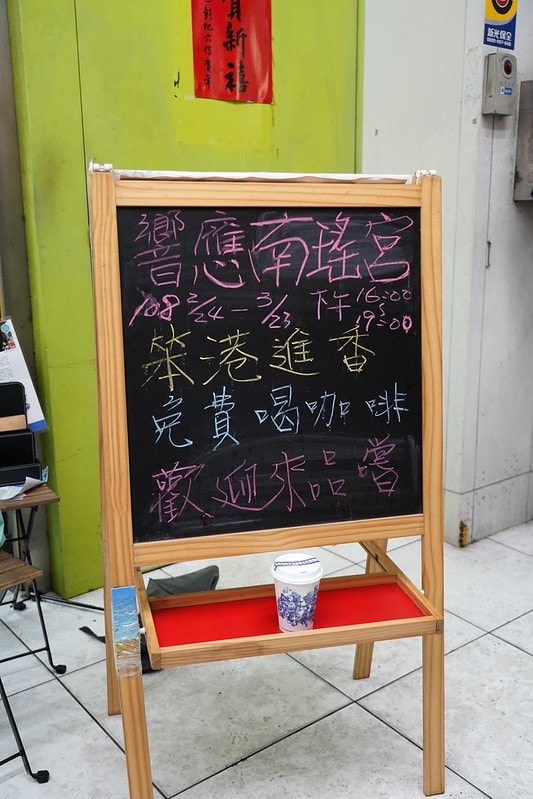 賀新禧
彰化六信
響應南瑤宮
108 2/24 — 3/23 下午 16:00
~
19:00
笨港進香
免費喝咖啡
歡迎來品嚐
新光保全